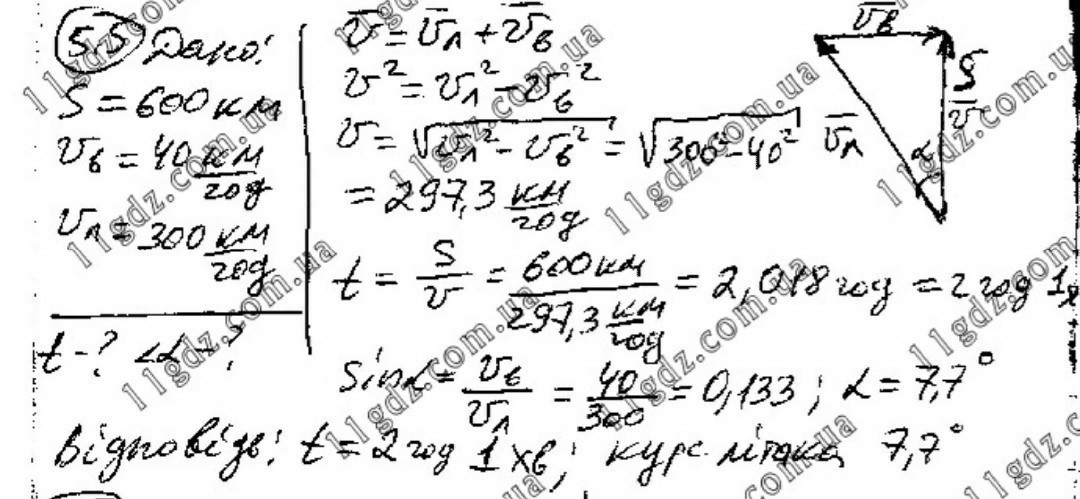 55 Дано:
S = 600 км
vв = 40 км/год
vл = 300 км/год
t - ? ∠α - ?
v̅ = v̅л + v̅в
v² = vл² - vв²
v = √(vл² - vв²) = √(300² - 40²)
= 297,3 км/год
t = S/v = 600 км / 297,3 км/год = 2,018 год = 2 год 1х
sin α = vв/vл = 40/300 = 0,133; α = 7,7°
Відповідь: t = 2 год 1 хв; курс літака 7,7°
v̅в
S̅
v̅
v̅л
α
11gdz.com.ua